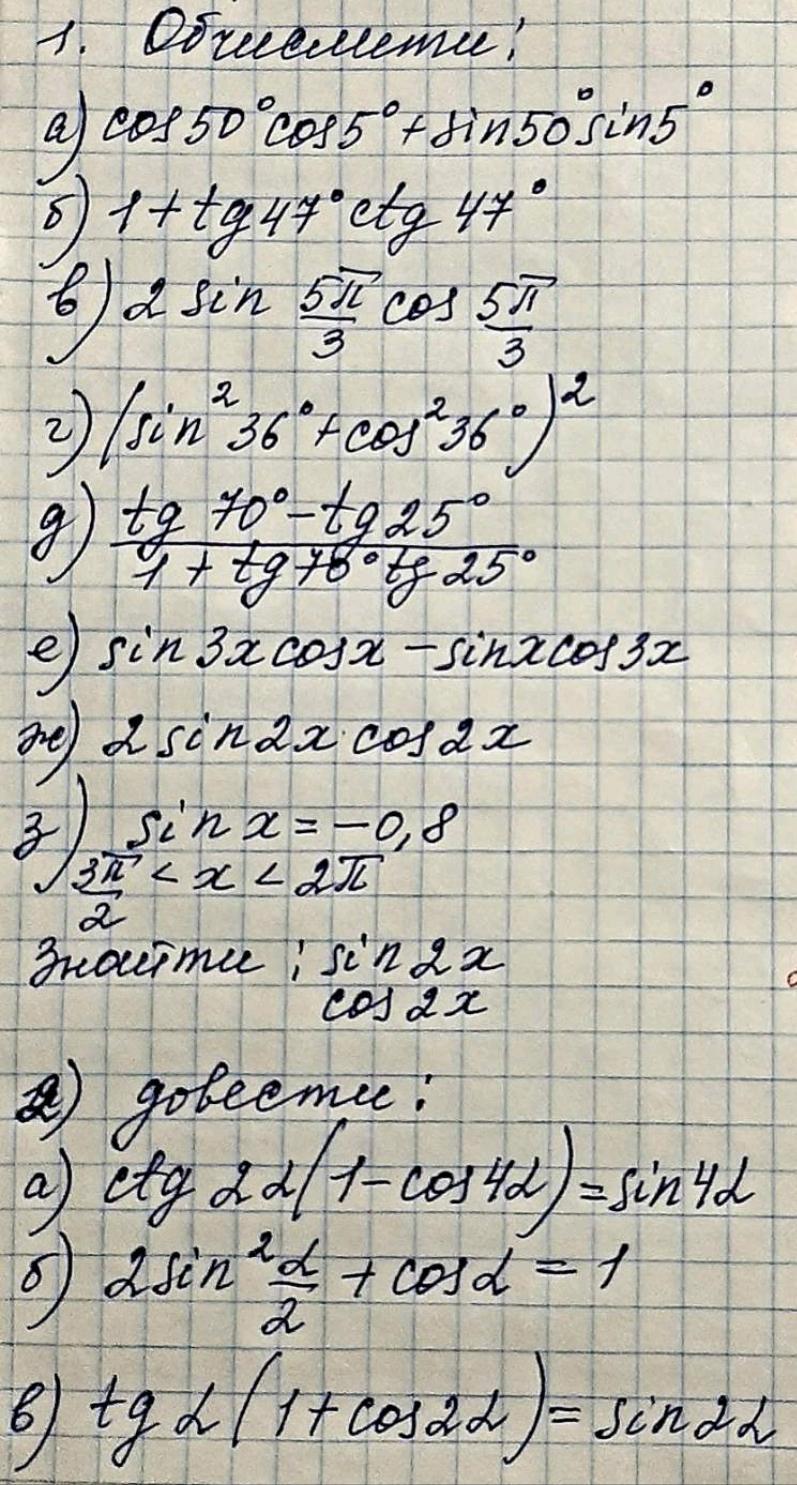 1. Обчислити:
а) cos50°cos5°+sin50°sin5°
б) 1+tg47°ctg47°
в) 2 sin 5π/3 cos 5π/3
г) (sin²36°+cos²36°)²
д) tg 70°-tg25° / 1+tg70°tg25°
е) sin3xcosx-sinxcos3x
ж) 2sin2x·cos2x
з) sinx=-0,8
3π/2 < x < 2π
Знайти: sin2x
cos2x
2) довести:
а) ctg 2α(1-cos4α)=sin4α
б) 2sin²α/2+cosα=1
в) tgα(1+cos2α)=sin2α